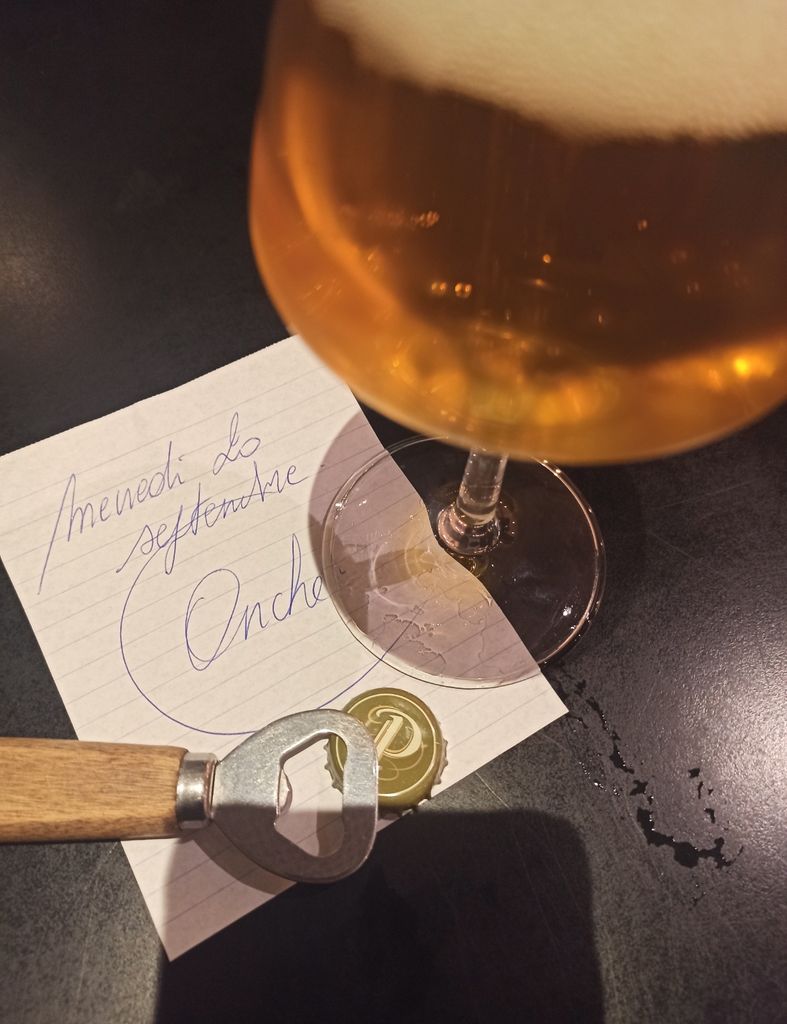 Mercredi 20
septembre
Onche
P